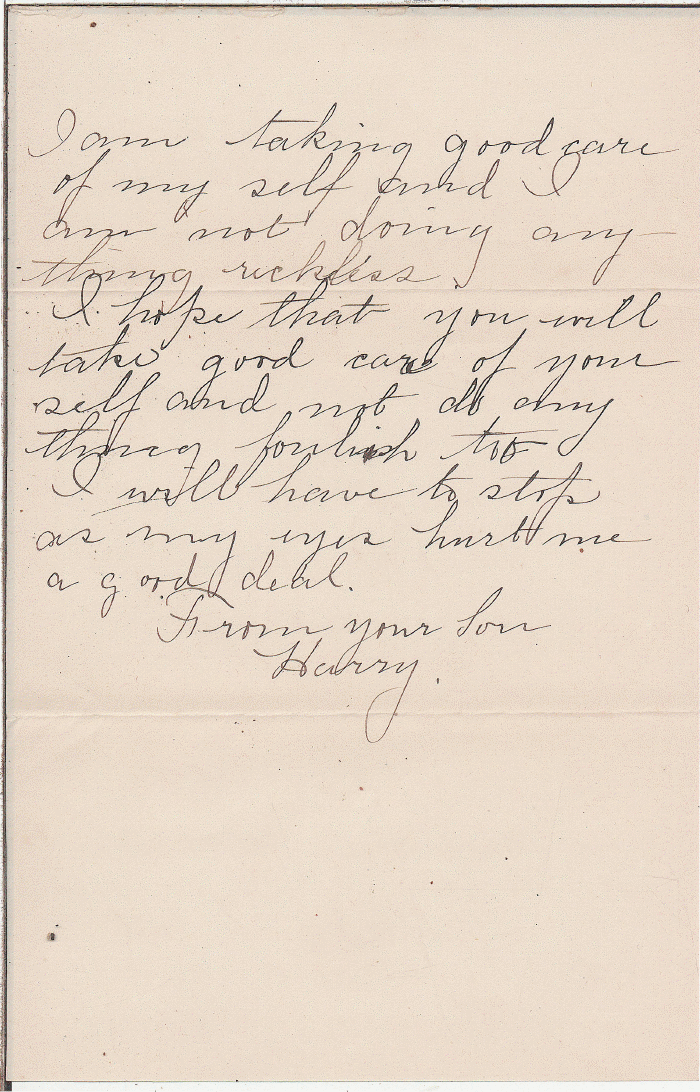 I am taking good care
of my self and I
am not doing any
thing reckless.
I hope that you will
take good care of your
self and not do any
thing foolish too
I will have to stop
as my eyes hurt me
a good deal.
From your Son
Harry.